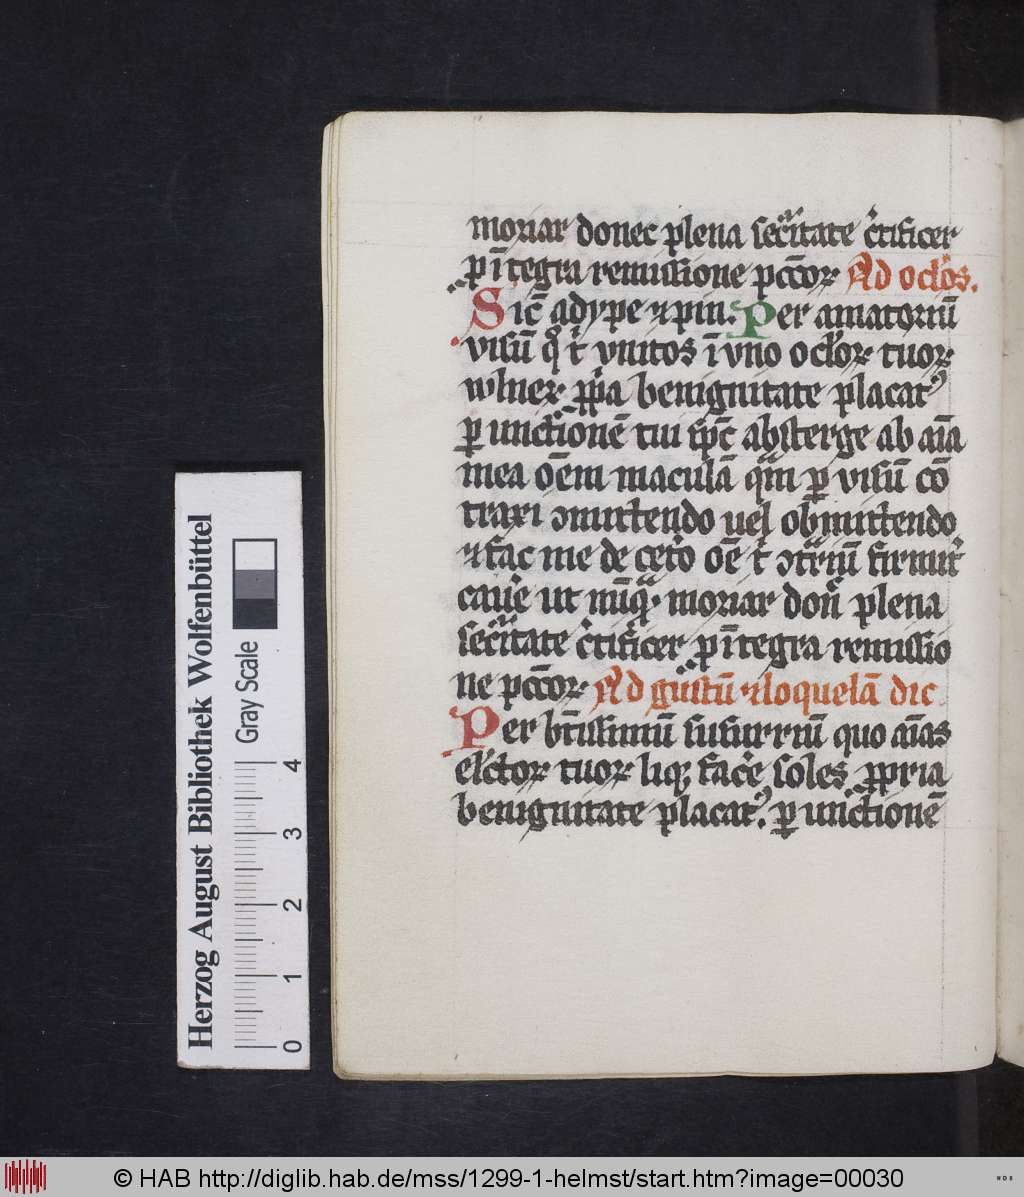 moriar donec plena secͥtate c̄tificer
p ītegra remissione pcc̄oꝝ Ad oclōs.
Sic̄ adype ⁊ pin. Per amatoriū
visū qͦ t̄ vnitos ī vno oclōꝝ tuoꝝ
wlneꝝ ꝓpͥa benignitate placatꝰ
ꝑ unctionē tui sp̄c absterge ab aīa
mea oēm maculā qm̄ ꝑ visū cō
traxi ɔmittendo uel obmittendo
⁊ fac me de ceto oē t̄ ɔtrͣriū firmit̄
cauē ut nūqͣ moriar don̄ plena
secͥtate c̄tificer ꝑ ītegra remissio
ne pcc̄oꝝ Ad gustū ⁊ loquelā dic
Per bt̄issimū susurriū quo aīas
elc̄toꝝ tuoꝝ liqꝫ facē soles ꝓpria
benignitate placatꝰ. ꝑ unctionē
Herzog August Bibliothek Wolfenbüttel
Gray Scale
0 1 2 3 4
© HAB http://diglib.hab.de/mss/1299-1-helmst/start.htm?image=00030